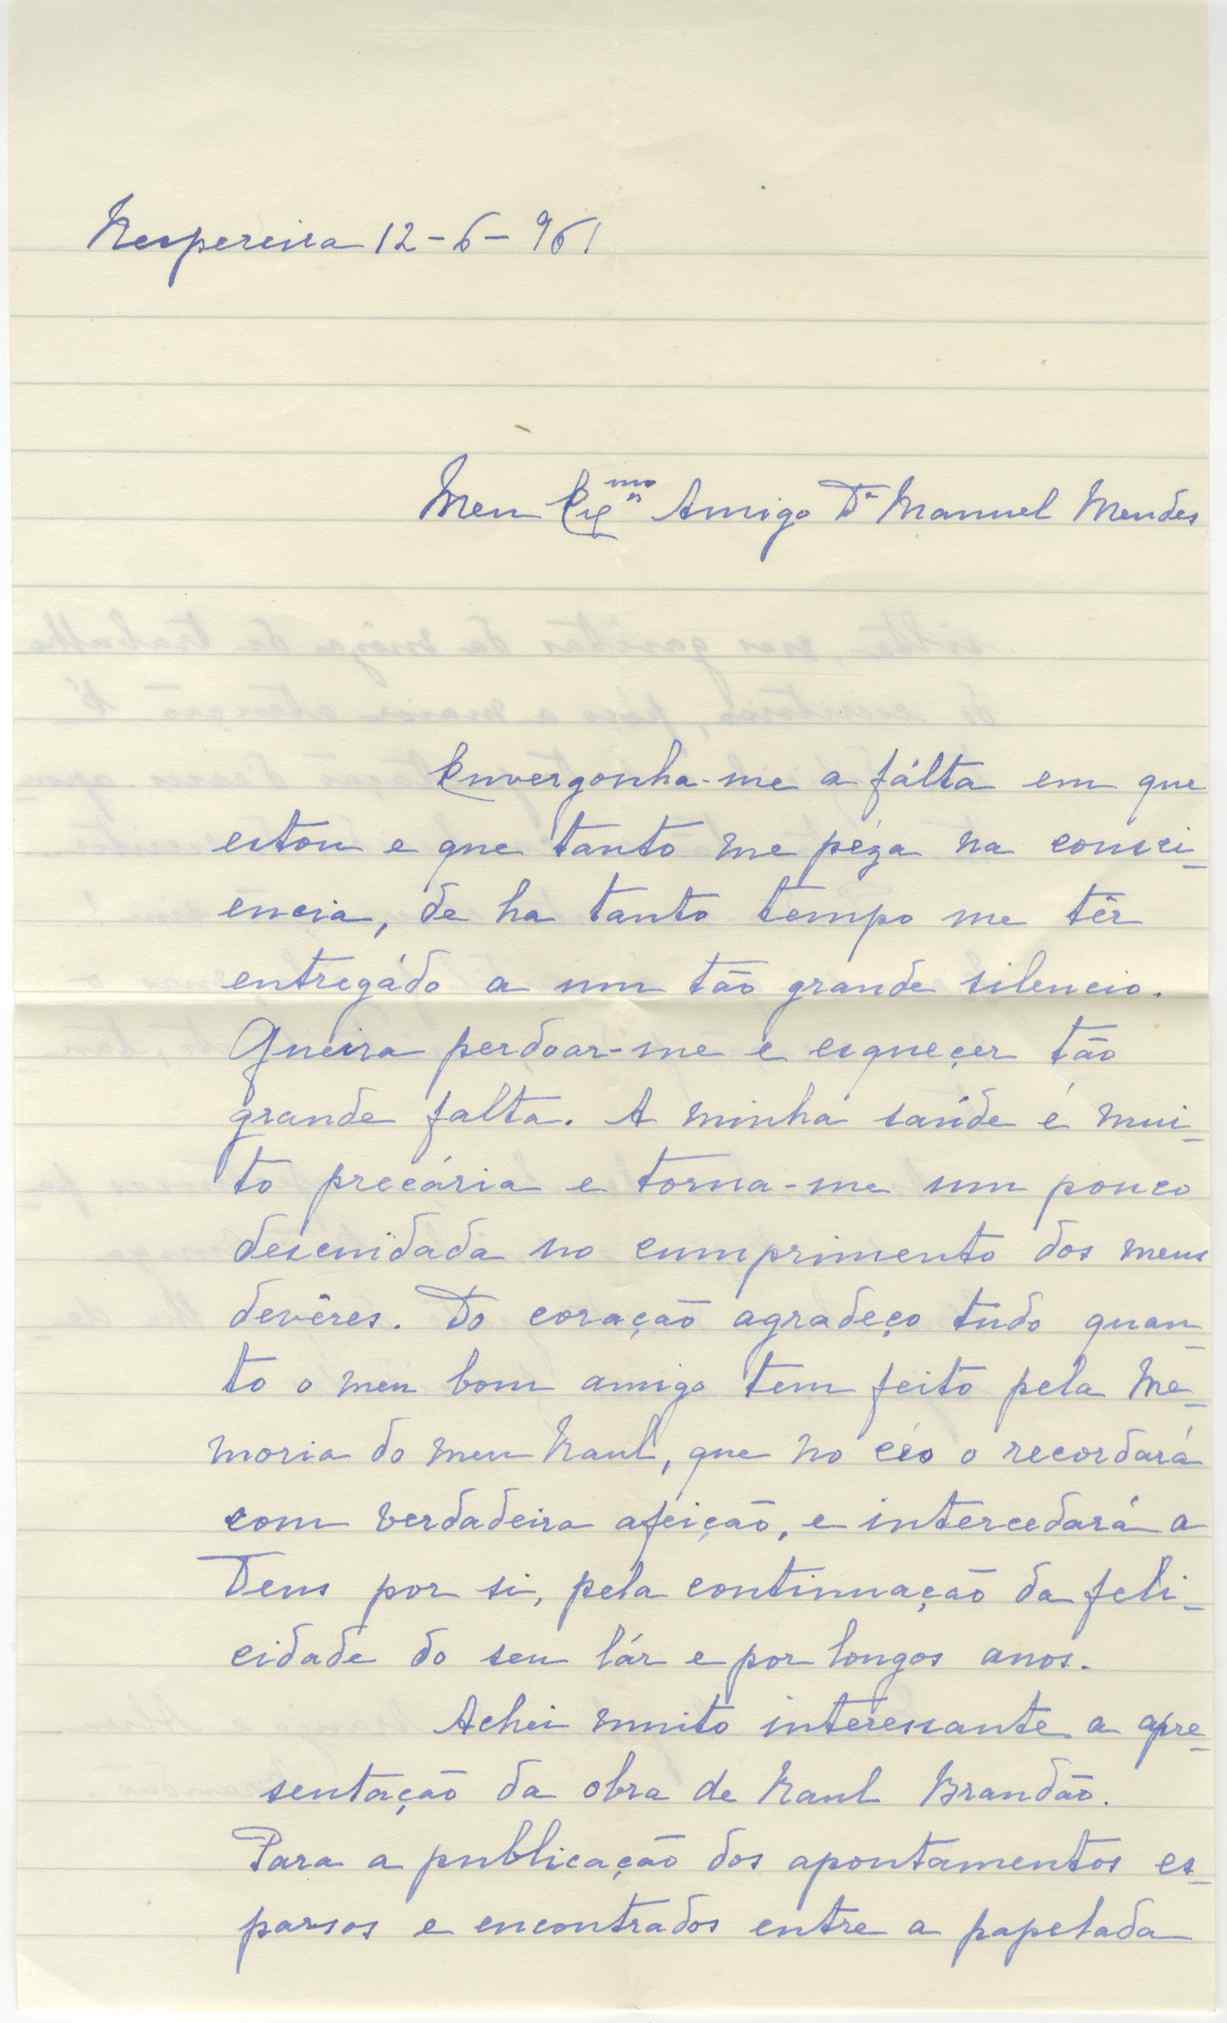 Nespereira 12-6-961
Meu Exmo Amigo Dr Manuel Mendes
Envergonha-me a fálta em que
estou e que tanto me péza na consci-
ência, de ha tanto tempo me têr
entregádo a um tão grande silencio.
Queira perdoar-me e esqueçer tão
grande falta. A minha saúde é mui-
to precária e torna-me um pouco
descuidada no cumprimento dos meus
devêres. Do coração agradeço tudo quan-
to o meu bom amigo tem feito pela Me-
moria do meu Raul, que no céo o recordará
com verdadeira afeição, e intercedará a
Deus por si, pela continuação da feli-
cidade do seu lár e por longos anos.
Achei muito interessante a apre-
sentação da obra de Raul Brandão.
Para a publicação dos apontamentos es-
parsos e encontrados entre a papelada